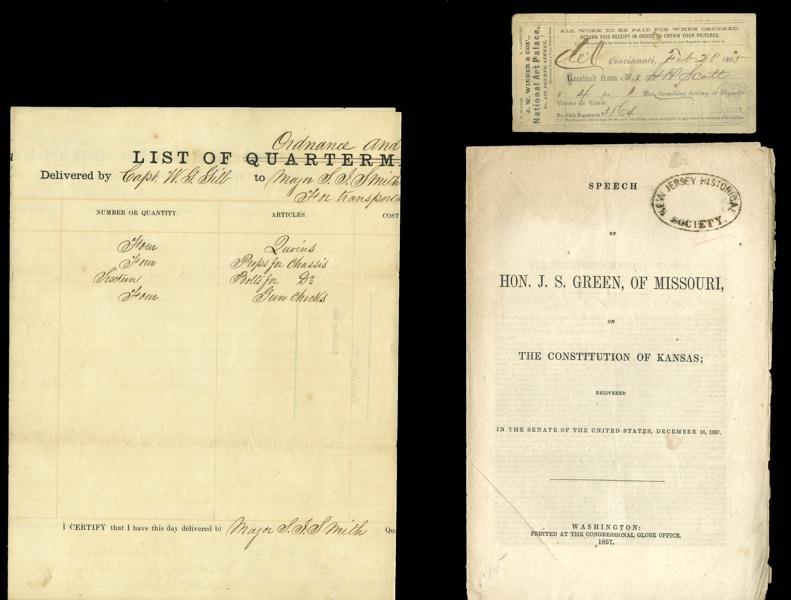 Ordnance and
LIST OF QUARTERM
Delivered by Capt. W. G. Gill to Major S. J. Smith
For transpor
NUMBER OR QUANTITY. ARTICLES. COST
Four
Four Props for Chassis
Sixteen Bolts for Do
Four Gun Chocks
I CERTIFY that I have this day delivered to Major S. J. Smith Qu
J. W. WINDER & CO'S.,
National Art Palace,
ALL WORK TO BE PAID FOR WHEN ORDERED.
RETURN THIS RECEIPT IN ORDER TO OBTAIN YOUR PICTURES.
Cincinnati, Feb 28 1865
Received from Mr Scott
$ 4 for 1 Doz Standing, Sitting, or Vignette
Cartes de Visite.
No. of this Negative
SPEECH
OF
HON. J. S. GREEN, OF MISSOURI,
ON
THE CONSTITUTION OF KANSAS;
DELIVERED
IN THE SENATE OF THE UNITED STATES, DECEMBER 16, 1857.
WASHINGTON:
PRINTED AT THE CONGRESSIONAL GLOBE OFFICE.
1857.
NEW JERSEY HISTORICAL
SOCIETY.